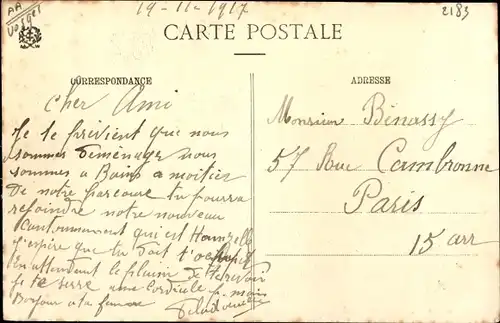 AA
Vosges
19-11-1917
2183
CARTE POSTALE
CORRESPONDANCE
ADRESSE
Cher Ami
Je te previent que nous
sommes déménagé nous
sommes a Bains a moitier
De notre parcours tu pourra
rejoindre notre nouveau
Cantonnement qui est
J'espère que tu doit t'
En attendant le plaisir de te revoir
Je te serre une Cordiale p. main
Bonjour a ta femme
Monsieur Bénassy
57 Rue Cambronne
Paris
15 arr